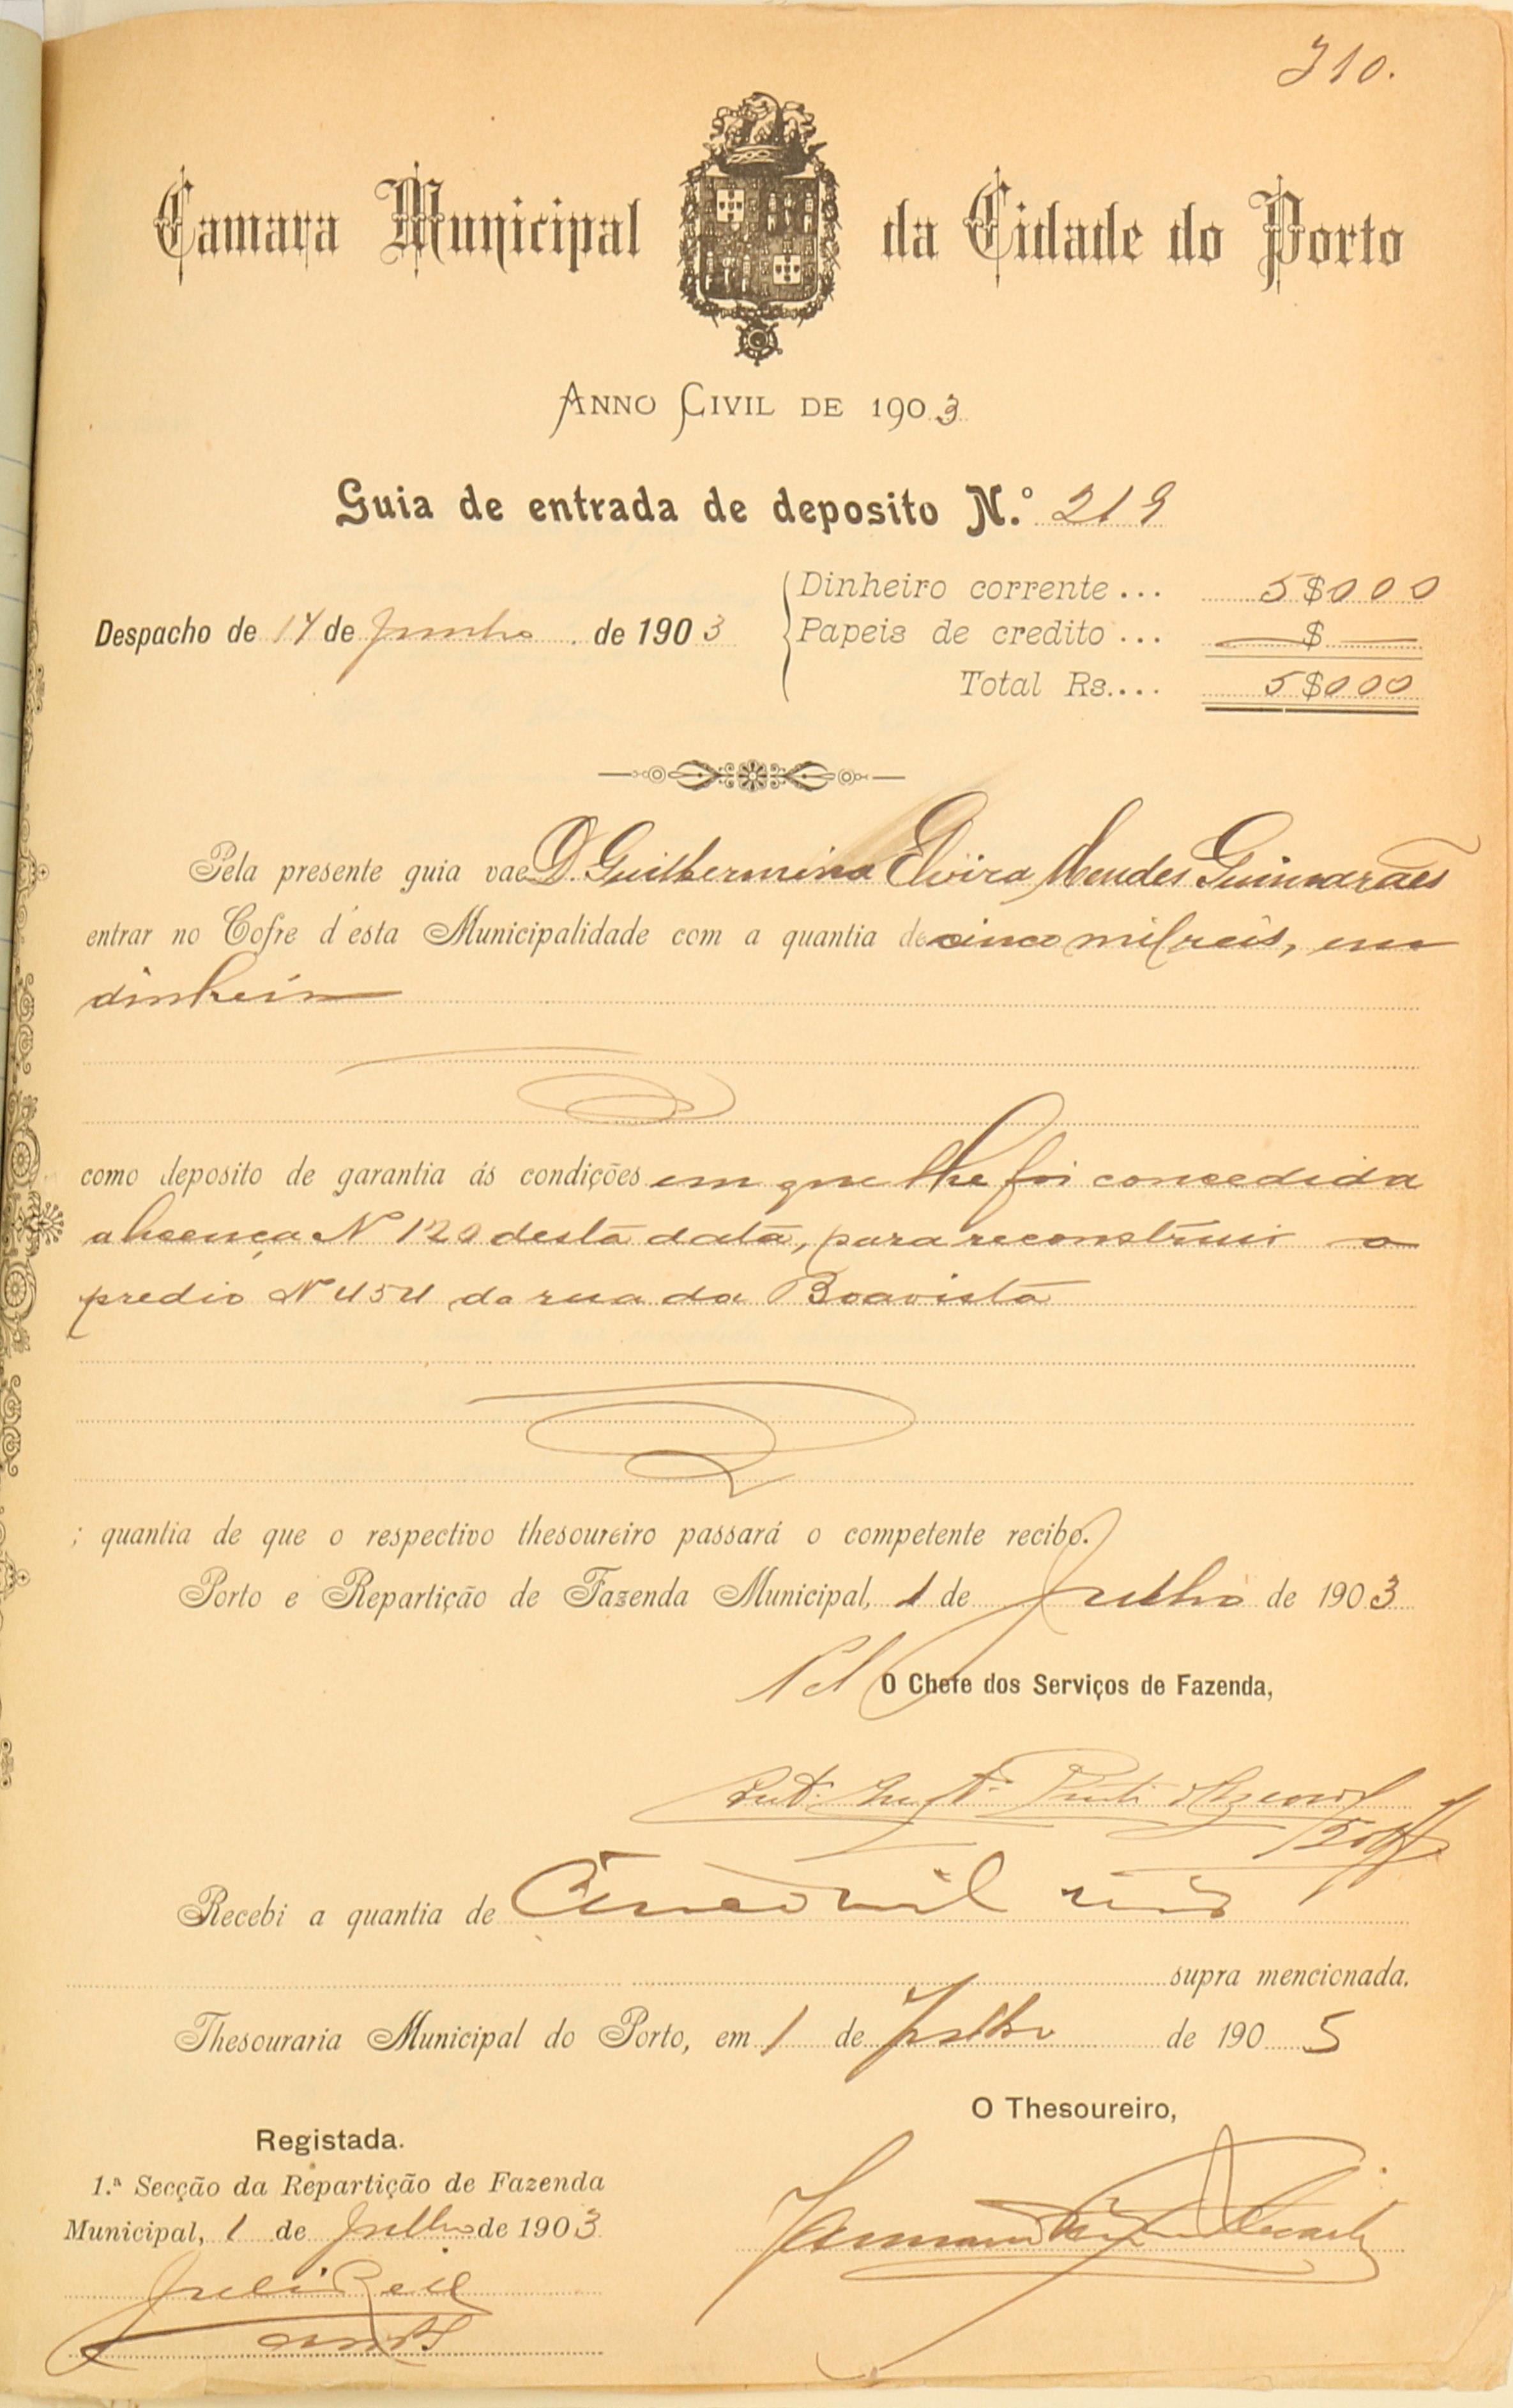 310.
Camara Municipal da Cidade do Porto
ANNO CIVIL DE 1903
Guia de entrada de deposito N.º 219
Dinheiro corrente... 5$000
Despacho de 17 de Junho de 1903
Papeis de credito... $
Total Rs.... 5$000
Pela presente guia vae D. Guilhermina Elvira Mendes Guimarães
entrar no Cofre d'esta Municipalidade com a quantia de cinco mil reis, em
dinheiro
como deposito de garantia ás condições em que lhe foi concedida
a licença Nº 120 desta data, para reconstruir o
predio Nº 454 da rua da Boavista
; quantia de que o respectivo thesoureiro passará o competente recibo.
Porto e Repartição de Fazenda Municipal, 1 de Julho de 1903
O Chefe dos Serviços de Fazenda,
Recebi a quantia de Cinco mil reis
supra mencionada.
Thesouraria Municipal do Porto, em 1 de Julho de 190
O Thesoureiro,
Registada.
1.ª Secção da Repartição de Fazenda
Municipal, 1 de Julho de 1903